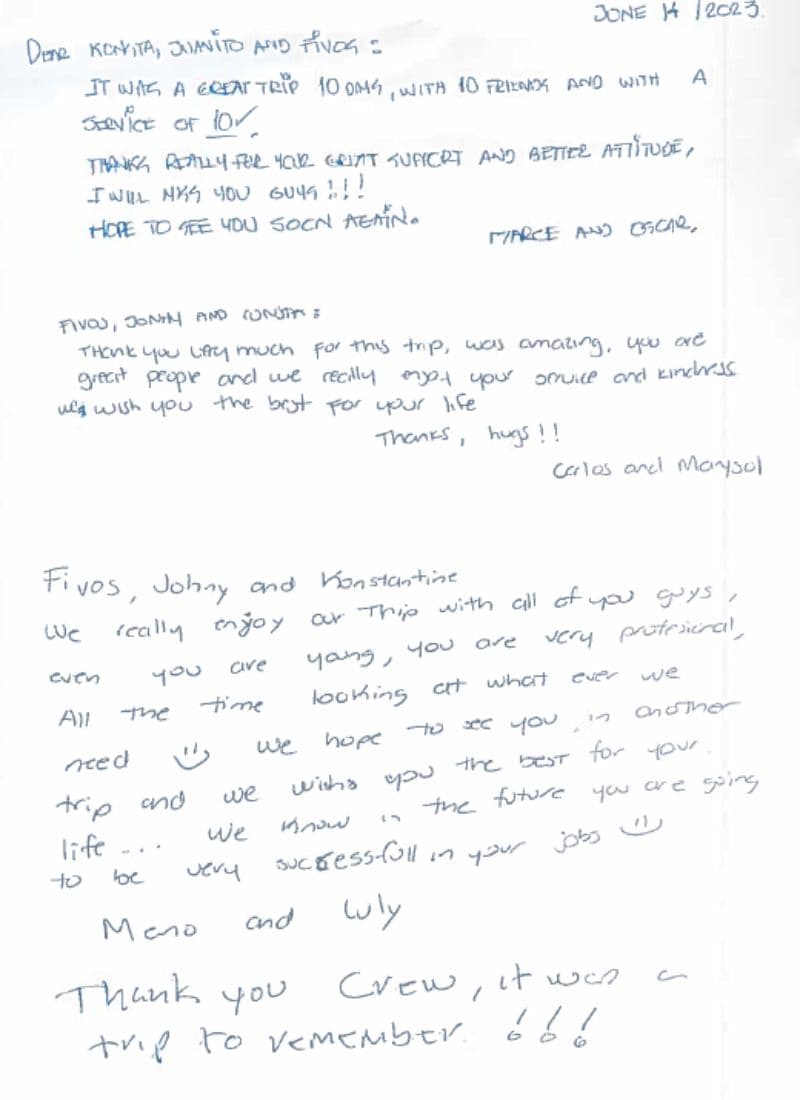 JUNE 14 / 2023.
Dear KONITA, JUANITO AND FIVOS :
IT WAS A GREAT TRIP 10 DAYS, WITH 10 FRIENDS AND WITH A
SERVICE OF 10✓.
THANKS REALLY FOR YOUR GREAT SUPPORT AND BETTER ATTITUDE,
I WILL MISS YOU GUYS !!!
HOPE TO SEE YOU SOON AGAIN.
MARCE AND OSCAR,
FIVOS, JONNY AND :
THANK you very much For this trip, was amazing, you are
great people and we really enjoy your service and kindness
we wish you the best for your life
Thanks, hugs!!
Carlos and Marysol
Fivos, Johny and Konstantine
We really enjoy our Trip with all of you guys,
even you are yong, you are very profesional,
All the time looking at what ever we
need ☺ We hope to see you in another
trip and we wishs you the best for your
life ... We know in the future you are going
to be very successfull in your jobs ☺
Meno and Luly
Thank you Crew, it was a
trip to remember !!!